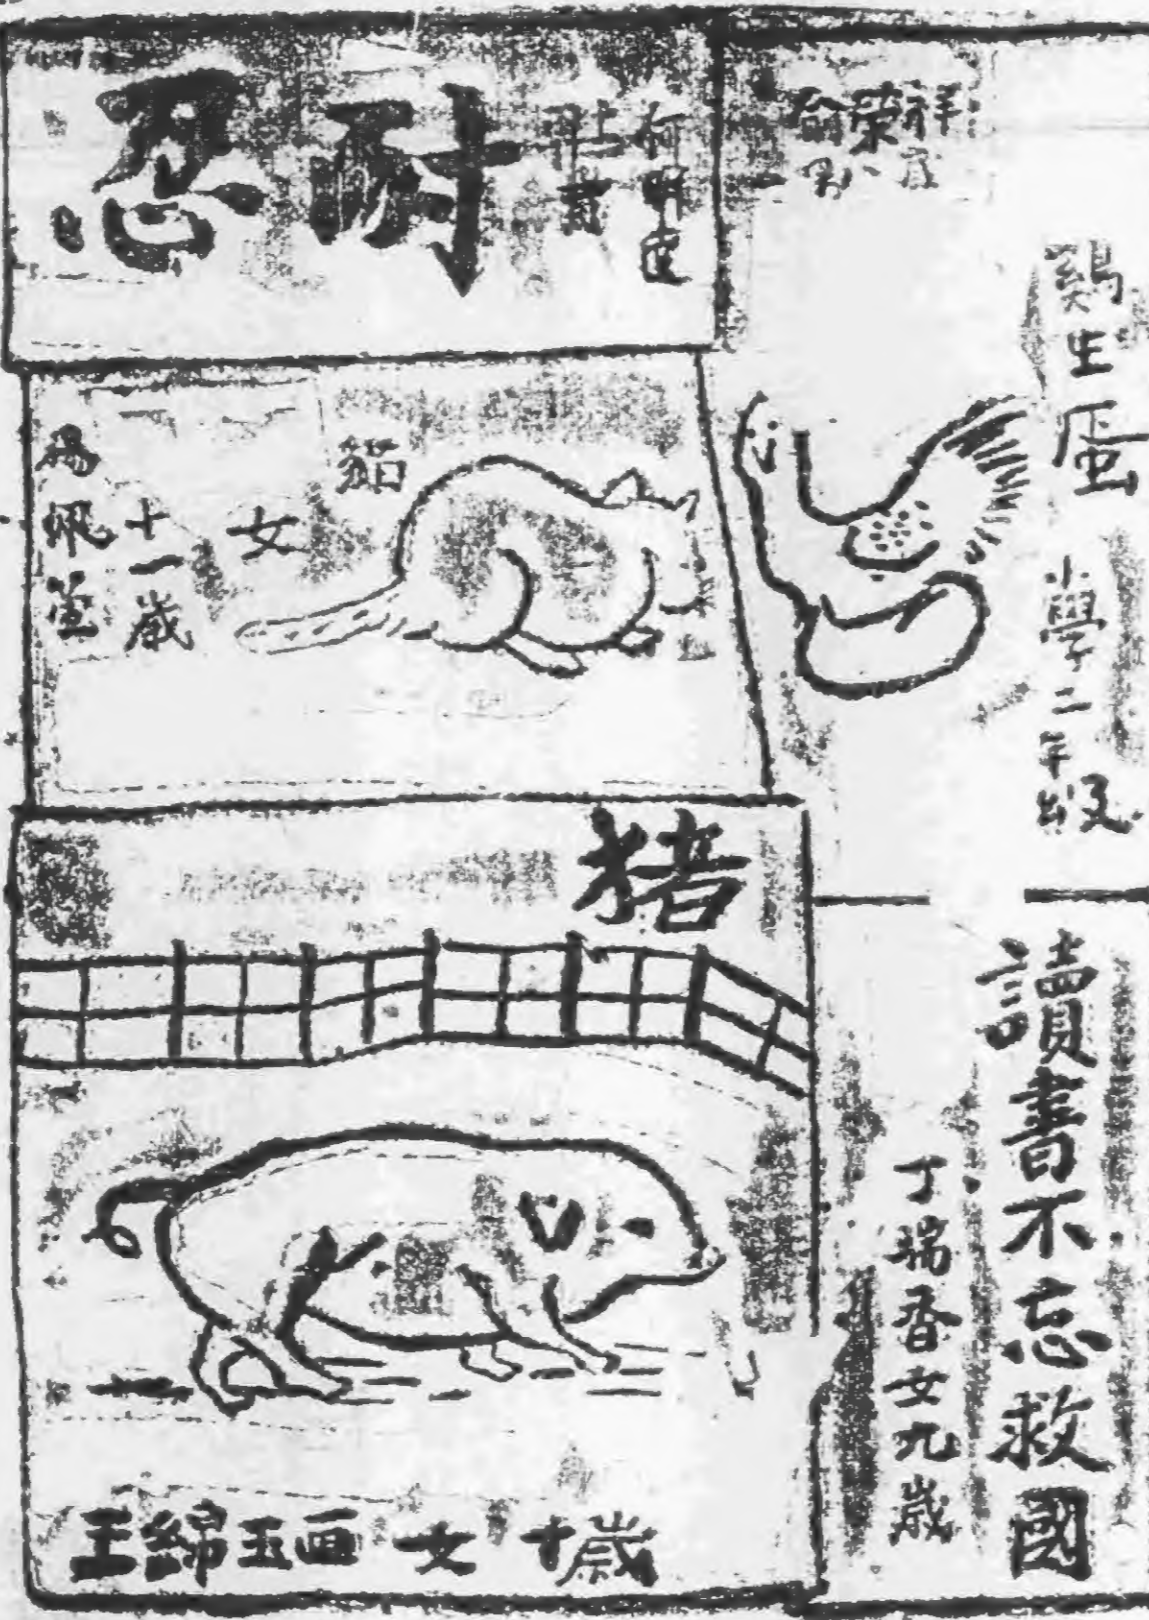 耐忍
俞榮祥
男八歲
鷄生蛋
小學二年級
貓
女
十一歲
猪
王綿玉画 女 十歲
讀書不忘救國
丁瑞香女九歲